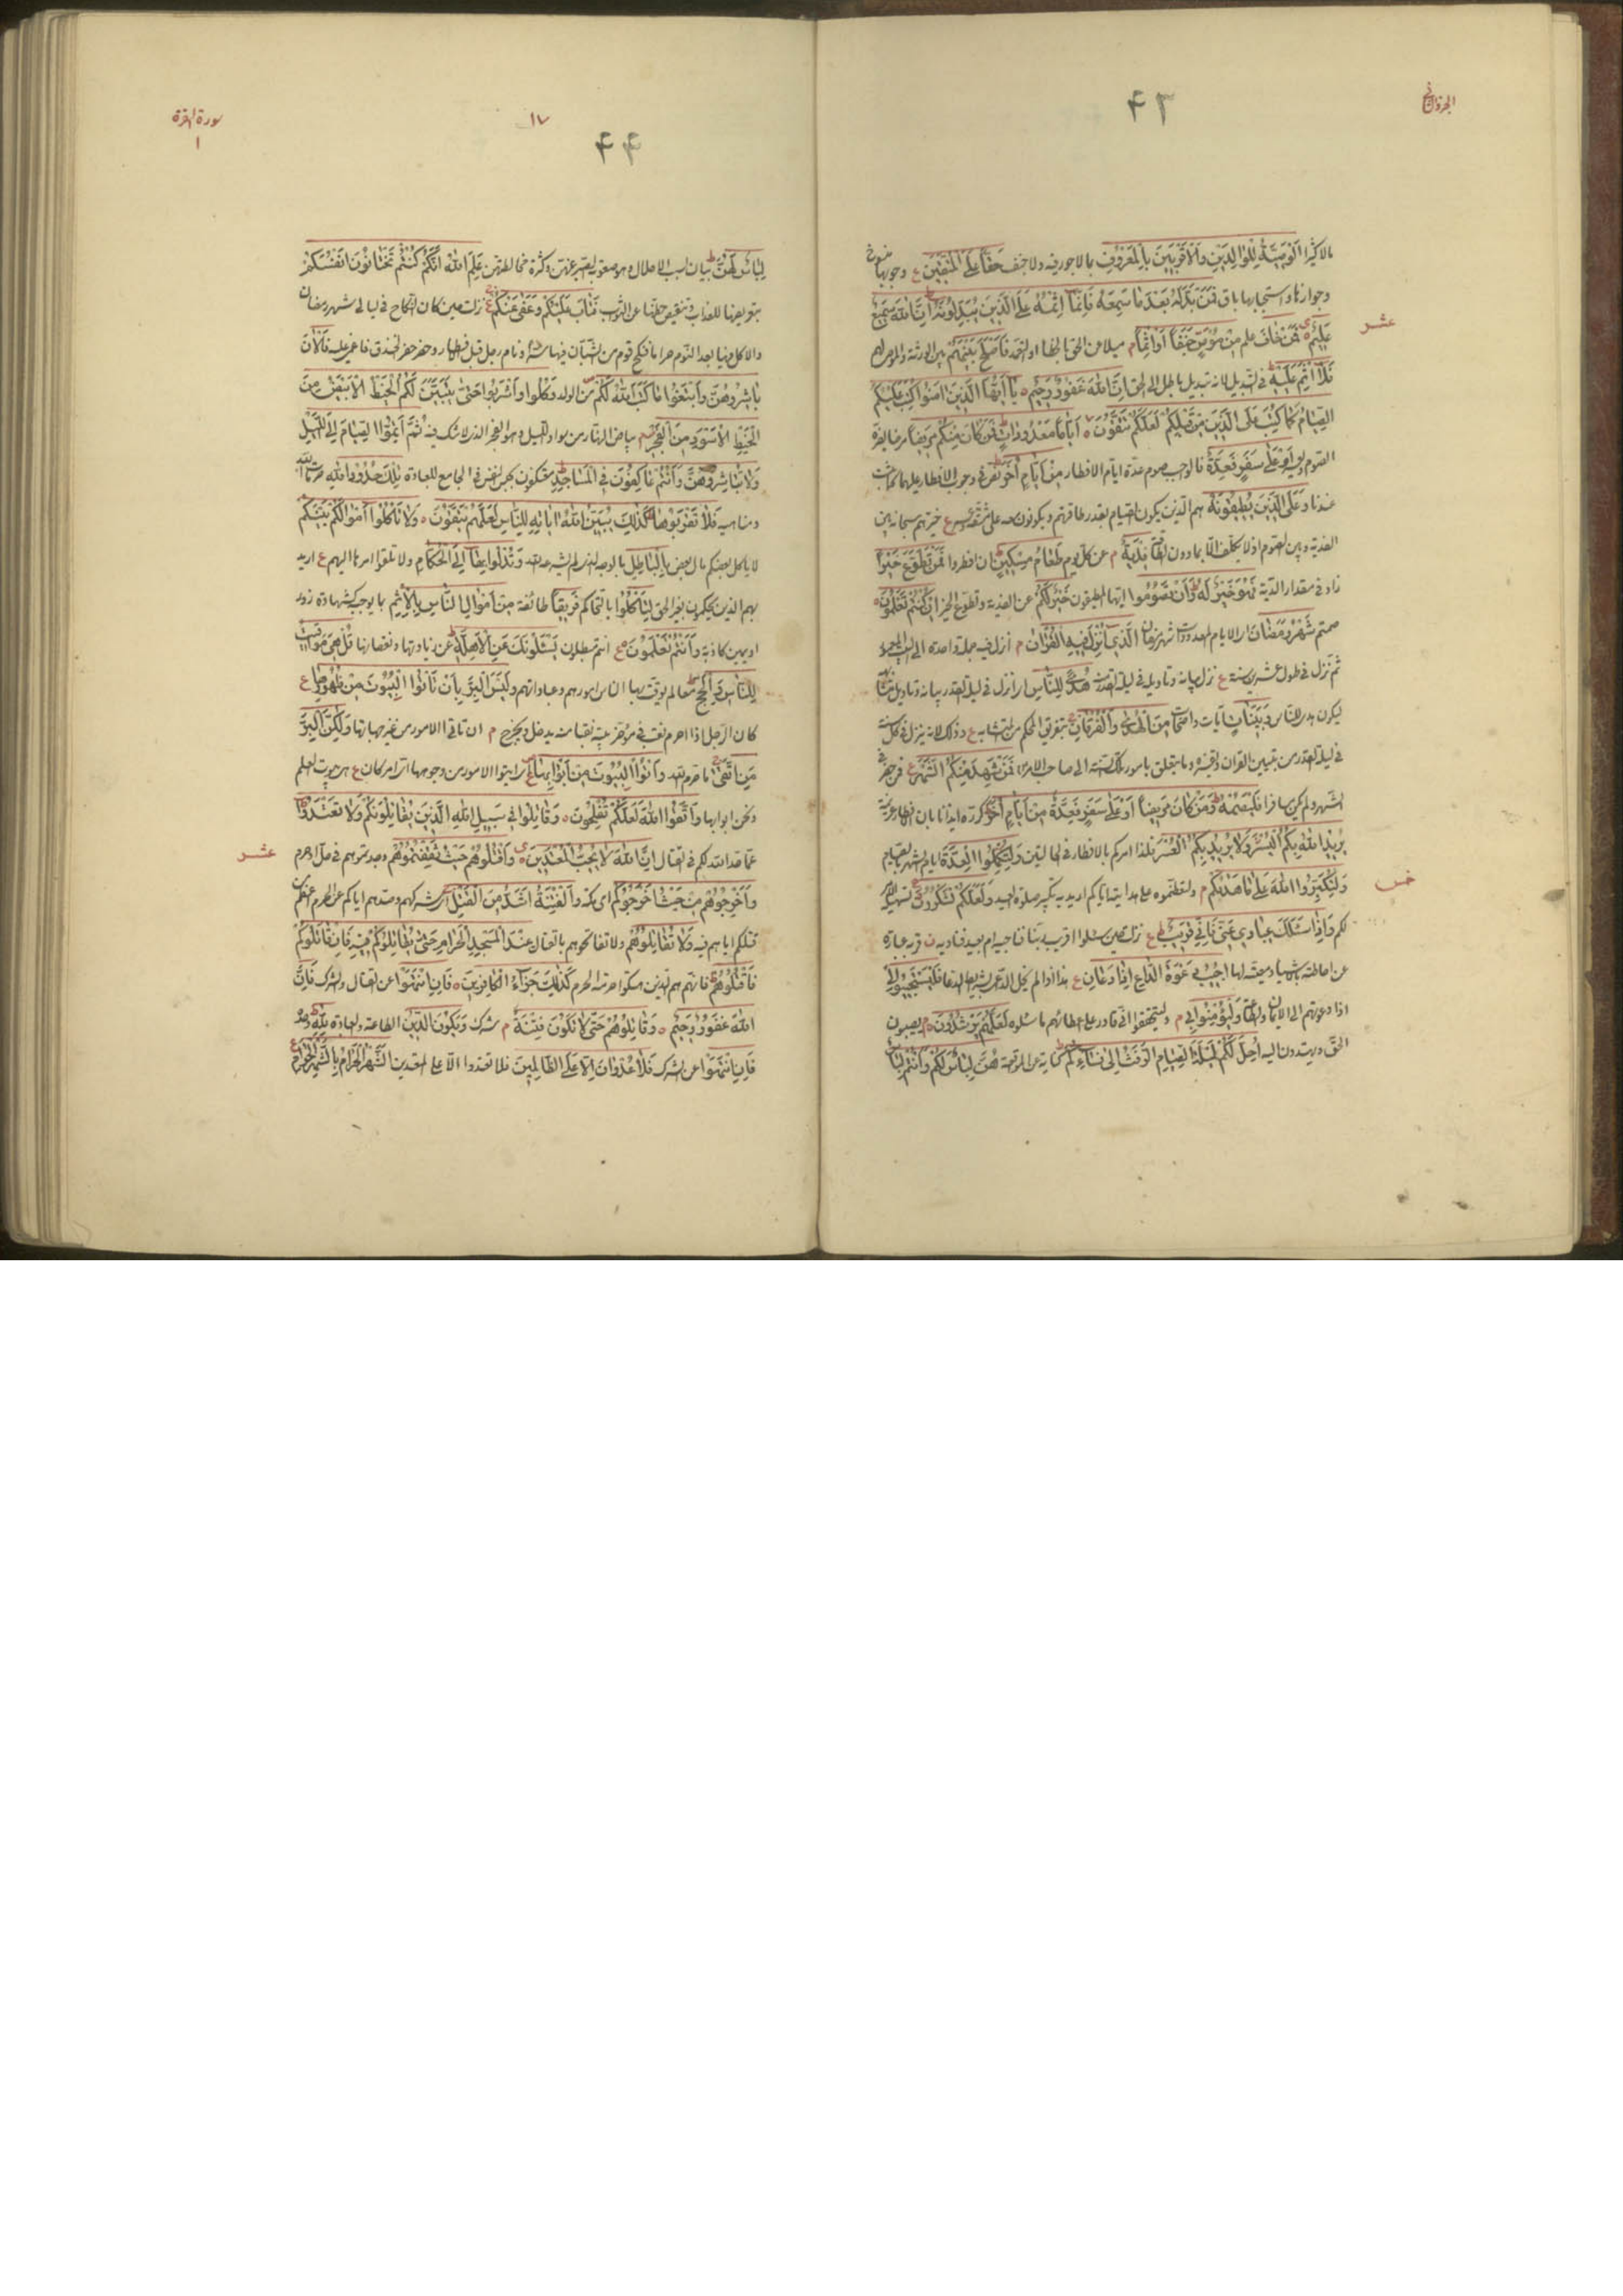 الجزء الثاني
۴۳
مالا كثيرا الْوَصِيَّةُ لِلْوَالِدَيْنِ وَالْأَقْرَبِينَ بِالْمَعْرُوفِ بما لا جور فيه ولا حيف حَقًّا عَلَى الْمُتَّقِينَ ع وجوبها منسوخ
وجوازها واستحبابها باق فَمَنْ بَدَّلَهُ بَعْدَ مَا سَمِعَهُ فَإِنَّمَا إِثْمُهُ عَلَى الَّذِينَ يُبَدِّلُونَهُ إِنَّ اللَّهَ سَمِيعٌ
عَلِيمٌ فَمَنْ خَافَ علم مِنْ مُوصٍ جَنَفًا أَوْ إِثْمًا م ميلا عن الحق بالخطا او التعمد فَأَصْلَحَ بَيْنَهُمْ بين الورثة والموصى لهم
فَلَا إِثْمَ عَلَيْهِ في التبديل لانه تبديل باطل الى الحق إِنَّ اللَّهَ غَفُورٌ رَحِيمٌ يَا أَيُّهَا الَّذِينَ آمَنُوا كُتِبَ عَلَيْكُمُ
الصِّيَامُ كَمَا كُتِبَ عَلَى الَّذِينَ مِنْ قَبْلِكُمْ لَعَلَّكُمْ تَتَّقُونَ أَيَّامًا مَعْدُودَاتٍ فَمَنْ كَانَ مِنْكُمْ مَرِيضًا مرضا يضره
الصوم أَوْ عَلَى سَفَرٍ فَعِدَّةٌ فالواجب صوم عدة ايام الافطار مِنْ أَيَّامٍ أُخَرَ في وجوب الافطار عليهما
عندنا وَعَلَى الَّذِينَ يُطِيقُونَهُ هم الذين يكون الصيام بقدر طاقتهم ويكونون معه على مشقة ع خيرهم سبحانه بين
الفدية وبين الصوم اذ لا يكلف الا بما دون الطاقة فِدْيَةٌ م عن كل يوم طَعَامُ مِسْكِينٍ ان افطروا فَمَنْ تَطَوَّعَ خَيْرًا
زاد في مقدار الفدية فَهُوَ خَيْرٌ لَهُ وَأَنْ تَصُومُوا ايها المطيقون خَيْرٌ لَكُمْ عن الفدية وتطوع الخير إِنْ كُنْتُمْ تَعْلَمُونَ
صمتم شَهْرُ رَمَضَانَ الايام المعدودات شهر رمضان الَّذِي أُنْزِلَ فِيهِ الْقُرْآنُ م انزل فيه جملة واحدة الى البيت المعمور
ثم نزل في طول عشرين سنة ع نزل بيانه وتاويله في ليلة القدر هُدًى لِلنَّاسِ
ليكون هدى للناس وَبَيِّنَاتٍ آيات واضحات مِنَ الْهُدَى وَالْفُرْقَانِ بتفريق المحكم من المتشابه ع وذلك لانه ينزل في كل سنة
في ليلة القدر من تبيين القران وتفسيره ما يتعلق بامور تلك السنة الى صاحب الامر فَمَنْ شَهِدَ مِنْكُمُ الشَّهْرَ ع فمن حضر في
الشهر ولم يكن مسافرا فَلْيَصُمْهُ وَمَنْ كَانَ مَرِيضًا أَوْ عَلَى سَفَرٍ فَعِدَّةٌ مِنْ أَيَّامٍ أُخَرَ كرره ايذانا بان الافطار عزيمة
يُرِيدُ اللَّهُ بِكُمُ الْيُسْرَ وَلَا يُرِيدُ بِكُمُ الْعُسْرَ فلذا امركم بالافطار في الحالتين وَلِتُكْمِلُوا الْعِدَّةَ ايام الشهر بالصيام
وَلِتُكَبِّرُوا اللَّهَ عَلَى مَا هَدَاكُمْ م ولتعظموه على هدايته اياكم اريد به تكبير صلوة العيد وَلَعَلَّكُمْ تَشْكُرُونَ
لكم وَإِذَا سَأَلَكَ عِبَادِي عَنِّي فَإِنِّي قَرِيبٌ ع نزلت حين سئلوا اقريب ربنا فنناجيه ام بعيد فنناديه ن قربه عبارة
عن احاطته بالاشياء ومعيته لها أُجِيبُ دَعْوَةَ الدَّاعِ إِذَا دَعَانِ ع هذا اذا لم يخل الداعي بشرائط الدعا فَلْيَسْتَجِيبُوا لِي
اذا دعوتهم الى الايمان والطاعة وَلْيُؤْمِنُوا بِي م وليتحققوا اني قادر على اعطائهم ما سئلوه لَعَلَّهُمْ يَرْشُدُونَ م يصيبون
الحق ويهتدون اليه أُحِلَّ لَكُمْ لَيْلَةَ الصِّيَامِ الرَّفَثُ إِلَى نِسَائِكُمْ كناية عن المواقعة هُنَّ لِبَاسٌ لَكُمْ وَأَنْتُمْ لِبَاسٌ
عشر
خمس
سورة البقرة
۱
۱۷
۴۴
لِبَاسٌ لَهُنَّ بيان لسبب الاحلال وهو صعوبة الصبر عنهن وكثرة مخالطتهن عَلِمَ اللَّهُ أَنَّكُمْ كُنْتُمْ تَخْتَانُونَ أَنْفُسَكُمْ
بتعريضها للعقاب وتنقيص حظها من الثواب فَتَابَ عَلَيْكُمْ وَعَفَى عَنْكُمْ ع نزلت حين كان النكاح في ليالي شهر رمضان
والاكل فيها بعد النوم حراما فنكح قوم من الشبان فيها سرا ونام رجل قبل افطاره وحضر حفر الخندق فاغمي عليه فَالْآنَ
بَاشِرُوهُنَّ وَابْتَغُوا مَا كَتَبَ اللَّهُ لَكُمْ من الولد وَكُلُوا وَاشْرَبُوا حَتَّى يَتَبَيَّنَ لَكُمُ الْخَيْطُ الْأَبْيَضُ مِنَ
الْخَيْطِ الْأَسْوَدِ مِنَ الْفَجْرِ م بياض النهار من سواد الليل وهو الفجر الذي لا شك فيه ثُمَّ أَتِمُّوا الصِّيَامَ إِلَى اللَّيْلِ
وَلَا تُبَاشِرُوهُنَّ وَأَنْتُمْ عَاكِفُونَ فِي الْمَسَاجِدِ معتكفون بحبس النفس في الجامع للعبادة تِلْكَ حُدُودُ اللَّهِ حرمات الله
ومناهيه فَلَا تَقْرَبُوهَا كَذَلِكَ يُبَيِّنُ اللَّهُ آيَاتِهِ لِلنَّاسِ لَعَلَّهُمْ يَتَّقُونَ وَلَا تَأْكُلُوا أَمْوَالَكُمْ بَيْنَكُمْ
لا ياكل بعضكم مال بعض بِالْبَاطِلِ بالوجه الذي لم يشرعه الله وَتُدْلُوا بِهَا إِلَى الْحُكَّامِ ولا تلقوا امرها اليهم ع اريد
بهم الذين يحكمون بغير الحق لِتَأْكُلُوا بالتحاكم فَرِيقًا طائفة مِنْ أَمْوَالِ النَّاسِ بِالْإِثْمِ بما يوجبه كشهادة زور
او يمين كاذبة وَأَنْتُمْ تَعْلَمُونَ ع انتم مبطلون يَسْأَلُونَكَ عَنِ الْأَهِلَّةِ عن زيادتها ونقصانها قُلْ هِيَ مَوَاقِيتُ
لِلنَّاسِ وَالْحَجِّ معالم يوقت بها الناس امورهم وعباداتهم وَلَيْسَ الْبِرُّ بِأَنْ تَأْتُوا الْبُيُوتَ مِنْ ظُهُورِهَا ع
كان الرجل اذا احرم نقب في مؤخر بيته نقبا منه يدخل ويخرج م ان تاتوا الامور من غير جهاتها وَلَكِنَّ الْبِرَّ
مَنِ اتَّقَى ما حرم الله وَأْتُوا الْبُيُوتَ مِنْ أَبْوَابِهَا ايتوا الامور من وجوهها اي امر كان ع هي بيوت العلم
ونحن ابوابها وَاتَّقُوا اللَّهَ لَعَلَّكُمْ تُفْلِحُونَ وَقَاتِلُوا فِي سَبِيلِ اللَّهِ الَّذِينَ يُقَاتِلُونَكُمْ وَلَا تَعْتَدُوا
عما حد الله لكم في القتال إِنَّ اللَّهَ لَا يُحِبُّ الْمُعْتَدِينَ وَاقْتُلُوهُمْ حَيْثُ ثَقِفْتُمُوهُمْ وجدتموهم في حل او حرم
وَأَخْرِجُوهُمْ مِنْ حَيْثُ أَخْرَجُوكُمْ اي مكة وَالْفِتْنَةُ أَشَدُّ مِنَ الْقَتْلِ شركهم وصدهم اياكم عن الحرم اعظم من
قتلكم اياهم فيه وَلَا تُقَاتِلُوهُمْ ولا تفاتحوهم بالقتال عِنْدَ الْمَسْجِدِ الْحَرَامِ حَتَّى يُقَاتِلُوكُمْ فِيهِ فَإِنْ قَاتَلُوكُمْ
فَاقْتُلُوهُمْ فانهم هم الذين هتكوا حرمة الحرم كَذَلِكَ جَزَاءُ الْكَافِرِينَ فَإِنِ انْتَهَوْا عن القتال والشرك فَإِنَّ
اللَّهَ غَفُورٌ رَحِيمٌ وَقَاتِلُوهُمْ حَتَّى لَا تَكُونَ فِتْنَةٌ م شرك وَيَكُونَ الدِّينُ الطاعة والعبادة لِلَّهِ وحده
فَإِنِ انْتَهَوْا عن الشرك فَلَا عُدْوَانَ إِلَّا عَلَى الظَّالِمِينَ فلا تعتدوا الا على المعتدين الشَّهْرُ الْحَرَامُ بِالشَّهْرِ الْحَرَامِ
عشر